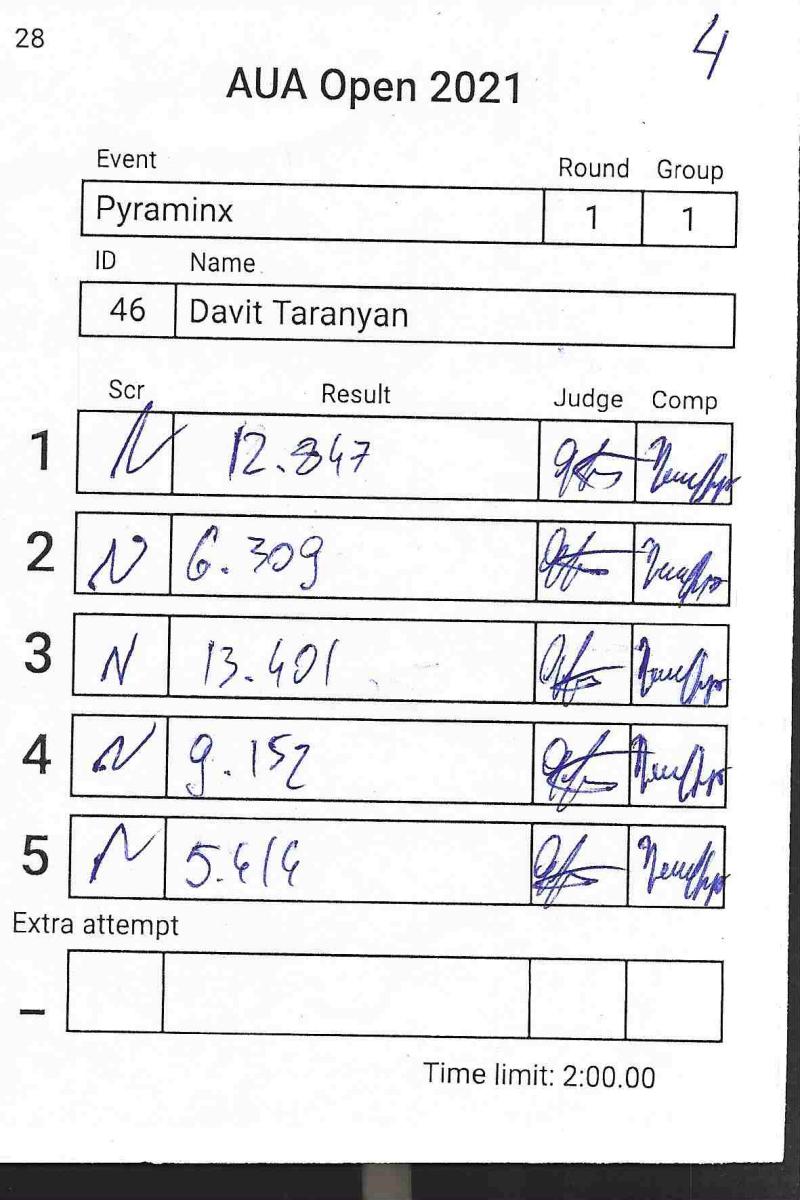 28
4
AUA Open 2021
Event Round Group
Pyraminx 1 1
ID Name
46 Davit Taranyan
Scr Result Judge Comp
1 N 12.847
2 N 6.309
3 N 13.401
4 N 9.152
5 N 5.414
Extra attempt
–
Time limit: 2:00.00